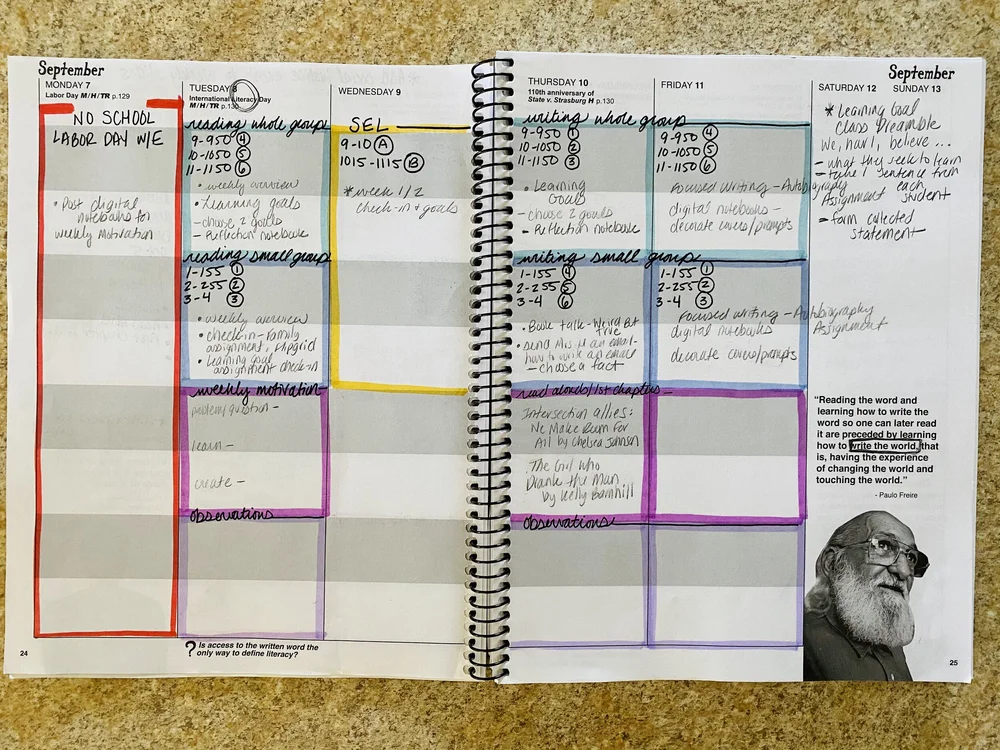 September
MONDAY 7
Labor Day M/H/TR p.129
NO SCHOOL
LABOR DAY W/E
• Post digital
notebooks for
weekly motivation
TUESDAY 8
International Literacy Day
M/H/TR p.130
reading whole group
9-950 ④
10-1050 ⑤
11-1150 ⑥
• weekly overview
• Learning goals
- choose 2 goals
- Reflection notebook
reading small group
1-155 ①
2-255 ②
3-4 ③
• weekly overview
• check-in-Family
assignment, flipgrid
• Learning goal
assignment check-in
weekly motivation
problem/question -
learn -
create -
observations
? Is access to the written word the
only way to define literacy?
24
WEDNESDAY 9
SEL
9-10 Ⓐ
1015-1115 Ⓑ
* week 1/2
check-in & goals
THURSDAY 10
110th anniversary of
State v. Strasburg H p.130
writing whole group
9-950 ①
10-1050 ②
11-1150 ③
• Learning
Goals
- choose 2 goals
- Reflection notebook
writing small group
1-155 ④
2-255 ⑤
3-4 ⑥
• Book talk - Weird But
True
• send an email-
how to write an email
- choose a fact
read alouds/1st chapters -
Intersection allies:
We Make Room For
All by Chelsea Johnson
• The Girl Who
Drank the Moon
by Kelly Barnhill
observations
FRIDAY 11
9-950 ④
10-1050 ⑤
11-1150 ⑥
Focused Writing - Autobiography
Assignment
digital notebooks -
decorate covers/prompts
1-155 ①
2-255 ②
3-4 ③
Focused Writing - Autobiography
Assignment
digital notebooks
decorate covers/prompts
September
SATURDAY 12 SUNDAY 13
* Learning Goal
Class Preamble
We, believe ...
- what they seek to learn
- take 1 sentence from
each
student
- form collected
statement
"Reading the word and
learning how to write the
word so one can later read
it are preceded by learning
how to write the world, that
is, having the experience
of changing the world and
touching the world."
- Paulo Freire
25